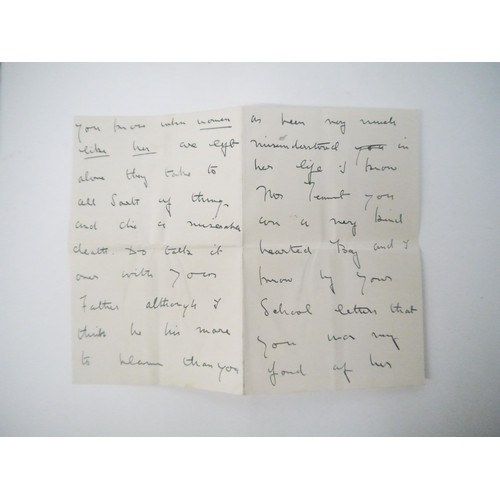 you know when women
alike her are left
alone they take to
all Soart of things
and die a miserable
death. Do talk it
over with your
Father although I
think he his more
to blam than you
as been very much
misunderstood you in
her life I know
Mrs Tennent you
wir a very kind
hearted Boy and I
know by your
School letters that
you was very
fond of her